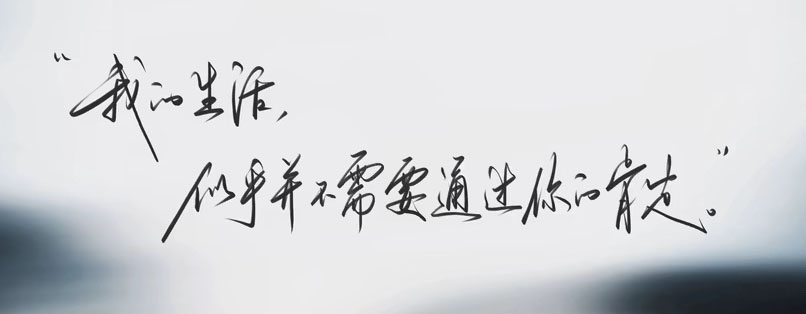 “我的生活，
似乎并不需要通过你的肯定。”